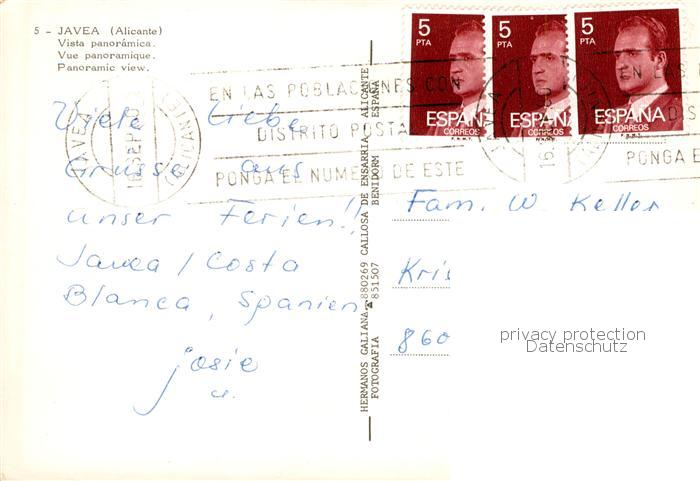 5 - JAVEA (Alicante)
Vista panorámica.
Vue panoramique.
Panoramic view.
Viele Liebe
Grüsse aus
unser Ferien!!
Javea / Costa
Blanca, Spanien
Josie
u.
HERMANOS GALIANA - 880269 CALLOSA DE ENSARRIA - ALICANTE
FOTOGRAFIA 851507 BENIDORM ESPAÑA
5 PTA ESPAÑA CORREOS F.N.M.T.
5 PTA ESPAÑA CORREOS F.N.M.T.
5 PTA ESPAÑA CORREOS F.N.M.T.
JAVEA
(ALICANTE)
EN LAS POBLACIONES CON
DISTRITO POSTA
PONGA EL NUMERO DE ESTE
JAVEA
16.
EN LAS
DIS
PONGA E
Fam. W. Keller
Kris
860
privacy protection
Datenschutz